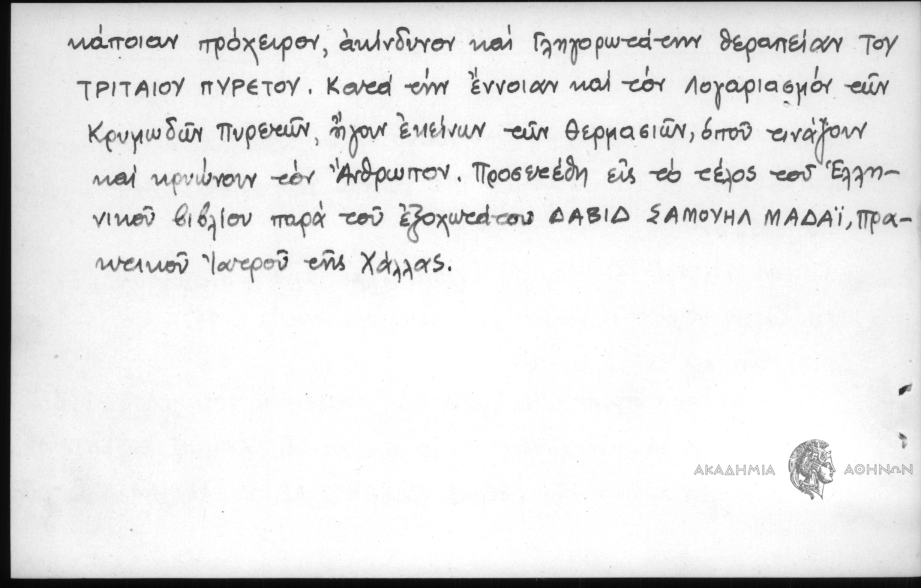 κάποιαν πρόχειρον, ἀκίνδυνον καὶ Γληγορωτάτην θεραπείαν ΤΟΥ
ΤΡΙΤΑΙΟΥ ΠΥΡΕΤΟΥ. Κατὰ τὴν ἔννοιαν καὶ τὸν Λογαριασμὸν τῶν
Κρυμωδῶν Πυρετῶν, ἤγουν ἐκείνων τῶν Θερμασιῶν, ὁποῦ τινάζουν
καὶ κρυώνουν τὸν Ἄνθρωπον. Προσετέθη εἰς τὸ τέλος τοῦ Ἑλλη-
νικοῦ βιβλίου παρὰ τοῦ ἐξοχωτάτου ΔΑΒΙΔ ΣΑΜΟΥΗΛ ΜΑΔΑΪ, Πρα-
κτικοῦ Ἰατροῦ τῆς Χάλλας.
ΑΚΑΔΗΜΙΑ ΑΘΗΝΩΝ